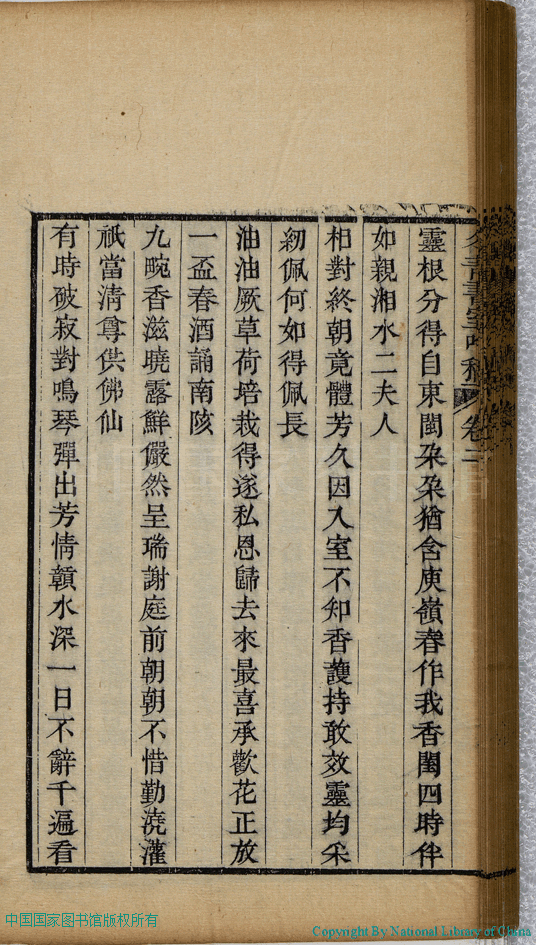 靈根分得自東閩朶朶猶含庾嶺春作我香閨四時伴
如親湘水二夫人
相對終朝竟體芳久因入室不知香護持敢效靈均采
紉佩何如得佩長
油油厥草荷培栽得遂私恩歸去來最喜承歡花正放
一盃春酒誦南陔
九畹香滋曉露鮮儼然呈瑞謝庭前朝朝不惜勤澆灌
祇當淸尊供佛仙
有時破寂對鳴琴彈出芳情贛水深一日不辭千遍看
卷二
中国国家图书馆版权所有
Copyright By National Library of China